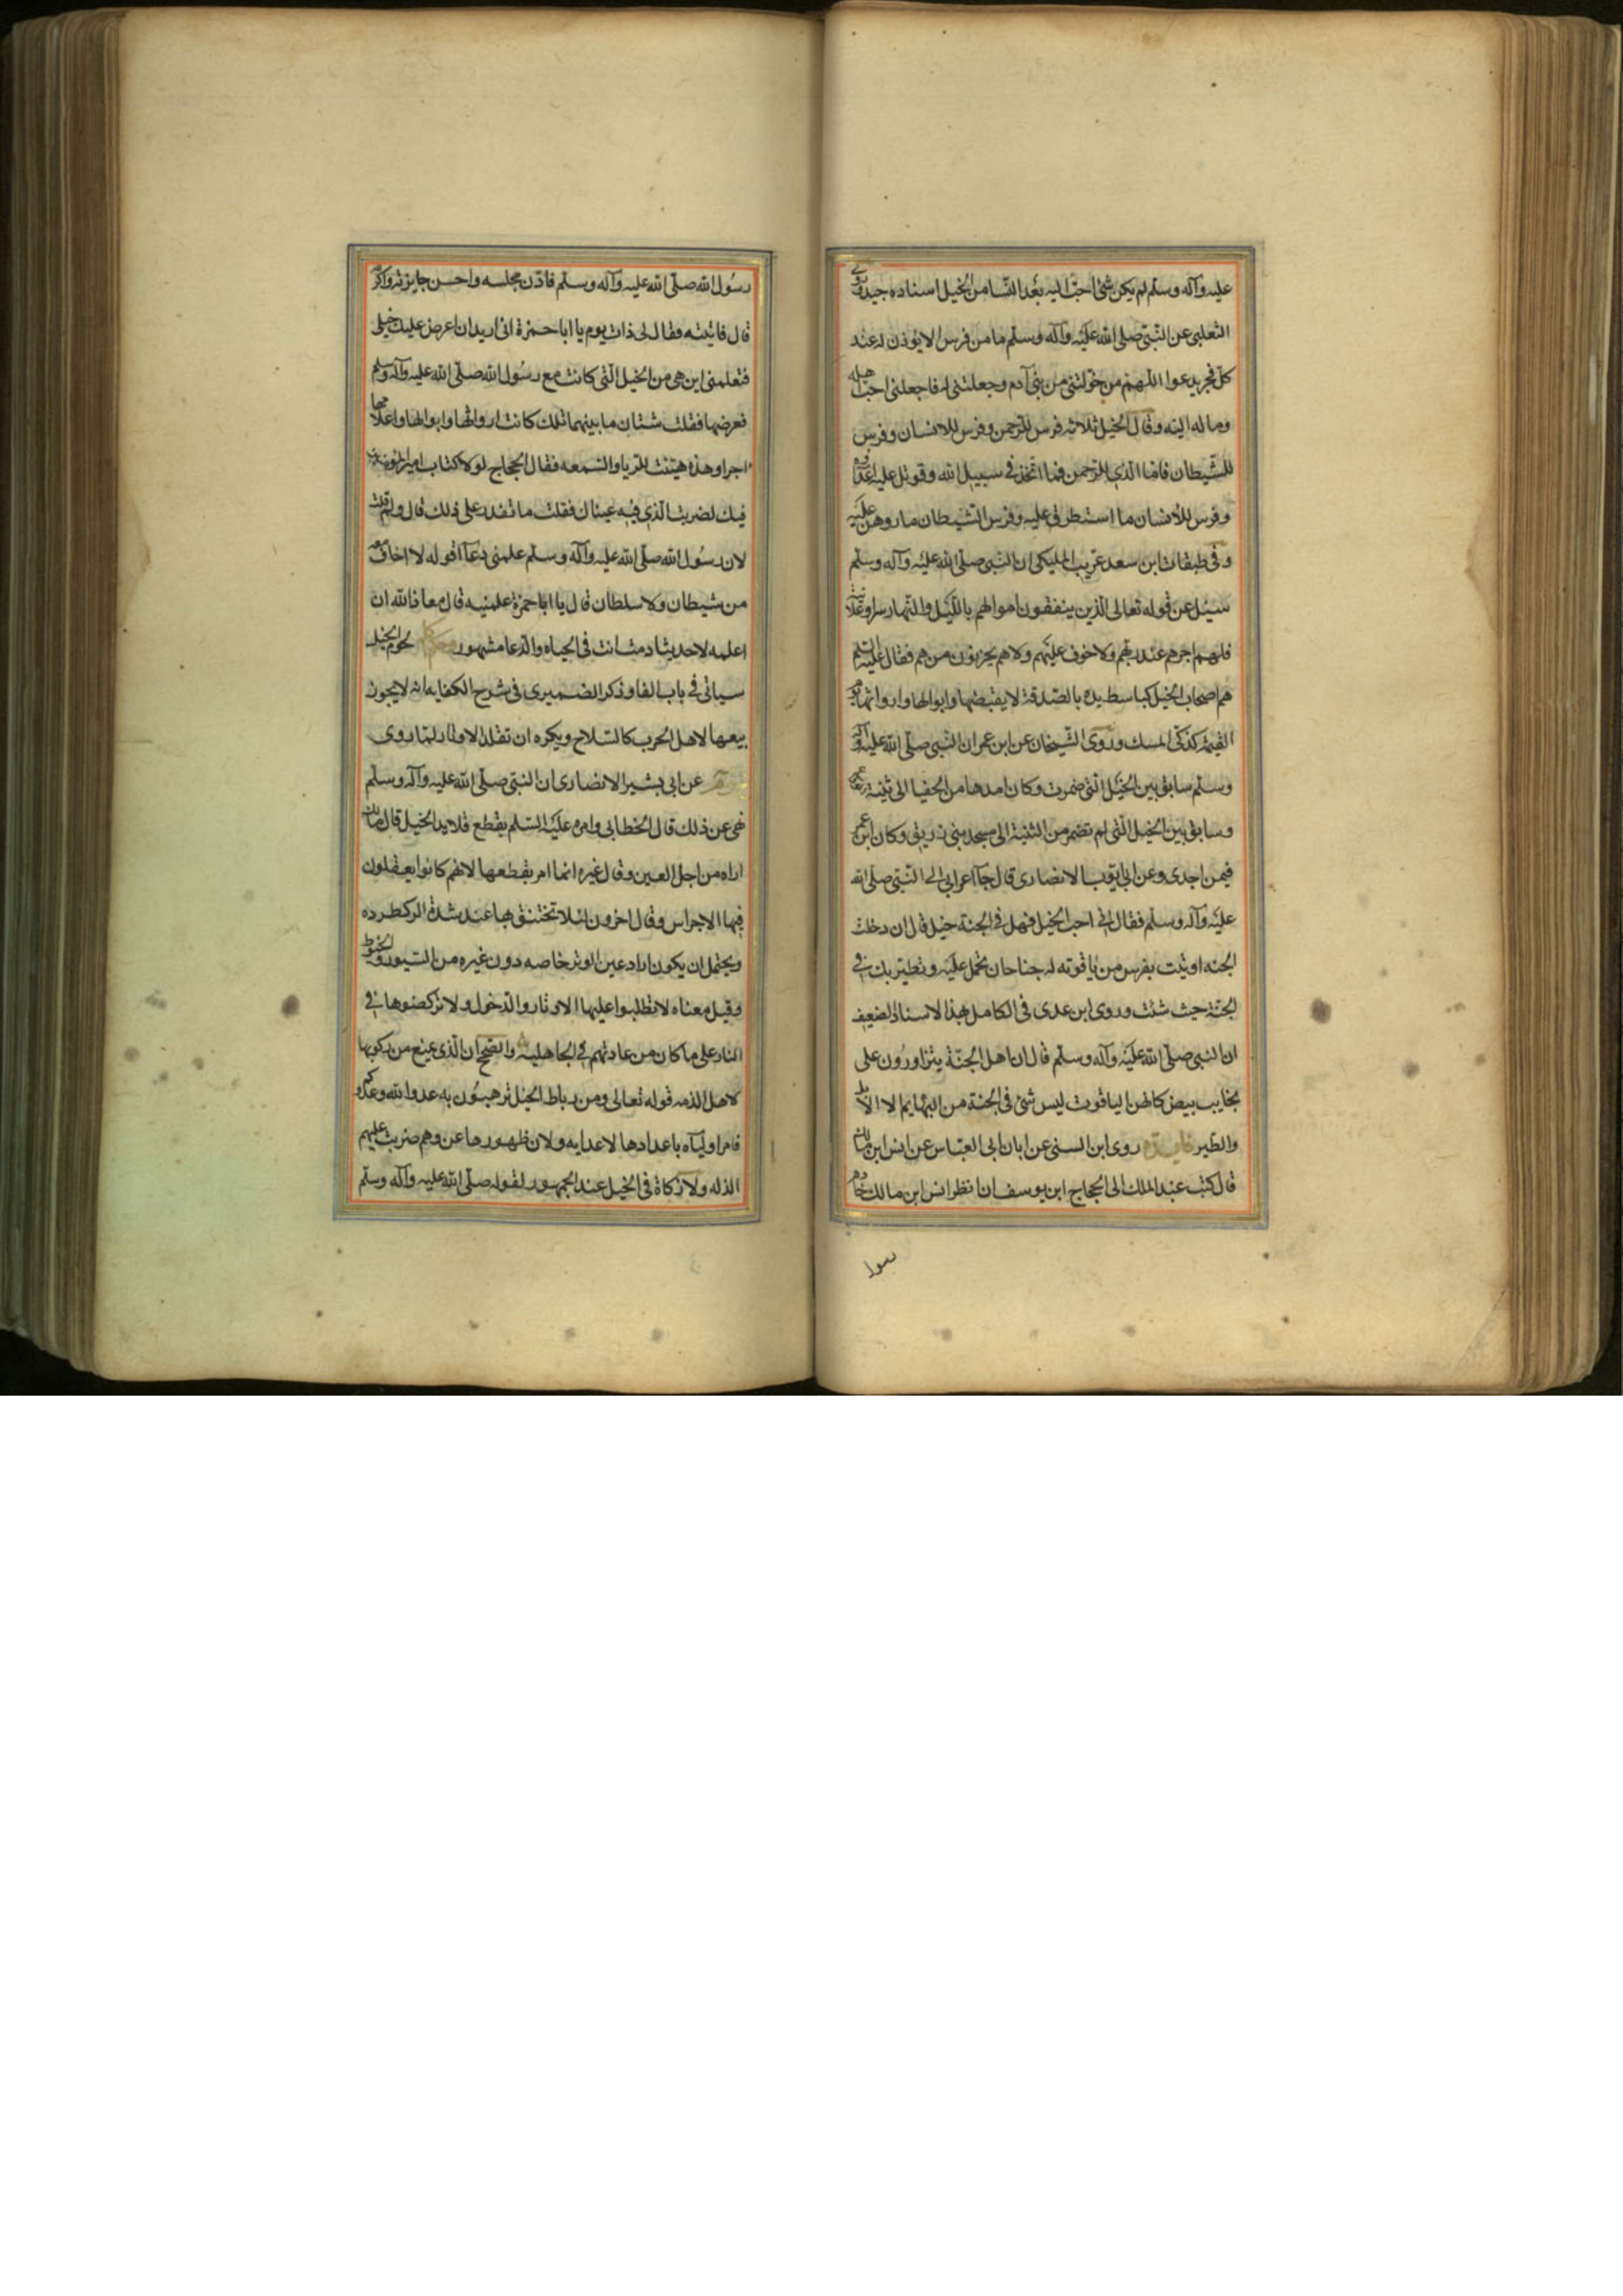 عليه وآله وسلم لم يكن شئ احب اليه بعد النسا من الخيل اسناده جيد وروى
الثعلبى عن النبى صلى الله عليه وآله وسلم ما من فرس الا يؤذن له عند
كل فجر يدعوا اللهم من خولتنى من بنى آدم وجعلتنى له فاجعلنى احب اهله
وماله اليه وقال الخيل ثلاثه فرس للرحمن وفرس للانسان وفرس
للشيطان فاما الذى للرحمن فما اتخذ فى سبيل الله وقوتل عليه اعداوه
وفرس للانسان ما استطرق عليه وفرس الشيطان ما روهن عليه
وفى طبقات ابن سعد عن عريب المليكى ان النبى صلى الله عليه وآله وسلم
سيل عن قوله تعالى الذين ينفقون اموالهم بالليل والنهار سرا وعلانية
فلهم اجرهم عند ربهم ولا خوف عليهم ولا هم يحزنون من هم فقال عليه السلم
هم اصحاب الخيل كباسط يده بالصدقة لا يقبضها وابوالها وارواثها يوم
القيمة كذكى المسك وروى الشيخان عن ابن عمر ان النبى صلى الله عليه وآله
وسلم سابق بين الخيل التى ضمرت وكان امدها من الحفيا الى ثنية
وسابق بين الخيل التى لم تضمر من الثنية الى مسجد بنى زريق وكان ابن عمر
فيمن اجدى وعن ابى ايوب الانصارى قال جآ اعرابى الى النبى صلى الله
عليه وآله وسلم فقال انى احب الخيل فهل فى الجنة خيل قال ان دخلت
الجنه اوتيت بفرس من ياقوته له جناحان تحمل عليه وتطير بك فى
الجنة حيث شئت وروى ابن عدى فى الكامل بهذا الاسناد الضعيف
ان النبى صلى الله عليه وآله وسلم قال ان اهل الجنة يتزاورون على
نجايب بيض كانهن الياقوت ليس شئ فى الجنة من البهايم الا الابل
والطير فايده روى ابن السنى عن ابان ابى العباس عن انس ابن مالك
قال كتب عبد الملك الى الحجاج ابن يوسف ان انظر انس ابن مالك خادم
رسول
رسول الله صلى الله عليه وآله وسلم فادن مجلسه واحسن جايزته واكرمه
قال فاتيته فقال لى ذات يوم يا ابا حمزة انى اريد ان اعرض عليك خيلى
فتعلمنى اين هى من الخيل التى كانت مع رسول الله صلى الله عليه وآله وسلم
فعرضها فقلت شتان ما بينهما تلك كانت ارواثها وابوالها واعلافها
اجرا وهذه هيئت للريا والسمعه فقال الحجاج لولا كتاب امير المومنين
فيك لضربت الذى فيه عيناك فقلت ما تقدر على ذلك قال ولم قلت
لان رسول الله صلى الله عليه وآله وسلم علمنى دعآ اقوله لا اخاف معه
من شيطان ولا سلطان قال يا ابا حمزة علمنيه قال معاذ الله ان
اعلمه لاحد يثاد مثانت فى الحياه والدعا مشهور لحوم الخيل
سياتى فى باب الفا وذكر الضميرى فى شرح الكفايه انه لا يجوز
بيعها لاهل الحرب كالسلاح ويكره ان تقلد الاوتار لما روى
عن ابى بشير الانصارى ان النبى صلى الله عليه وآله وسلم
نهى عن ذلك قال الخطابى وامره عليه السلم بقطع قلايد الخيل قال مالك
اراه من اجل العين وقال غيره انما امر بقطعها لانهم كانوا يعقلون
فيها الاجراس وقال اخرون لئلا تختنق بها عند شدة الركط رده
ويحتمل ان يكون اراد عين الوتر خاصه دون غيره من السيور والخيوط
وقيل معناه لا تطلبوا عليها الاوتار والدخول ولا تركضوها فى
النار على ما كان من عادتهم فى الجاهليه والصحح ان الذى يمنع من ركوبها
لاهل الذمه قوله تعالى ومن رباط الخيل ترهبون به عدوا لله وعدوكم
فامر اوليآه باعدادها لاعدايه ولان ظهورها عز وهم ضربت عليهم
الذله ولا زكاة فى الخيل عند الجمهور لقوله صلى الله عليه وآله وسلم